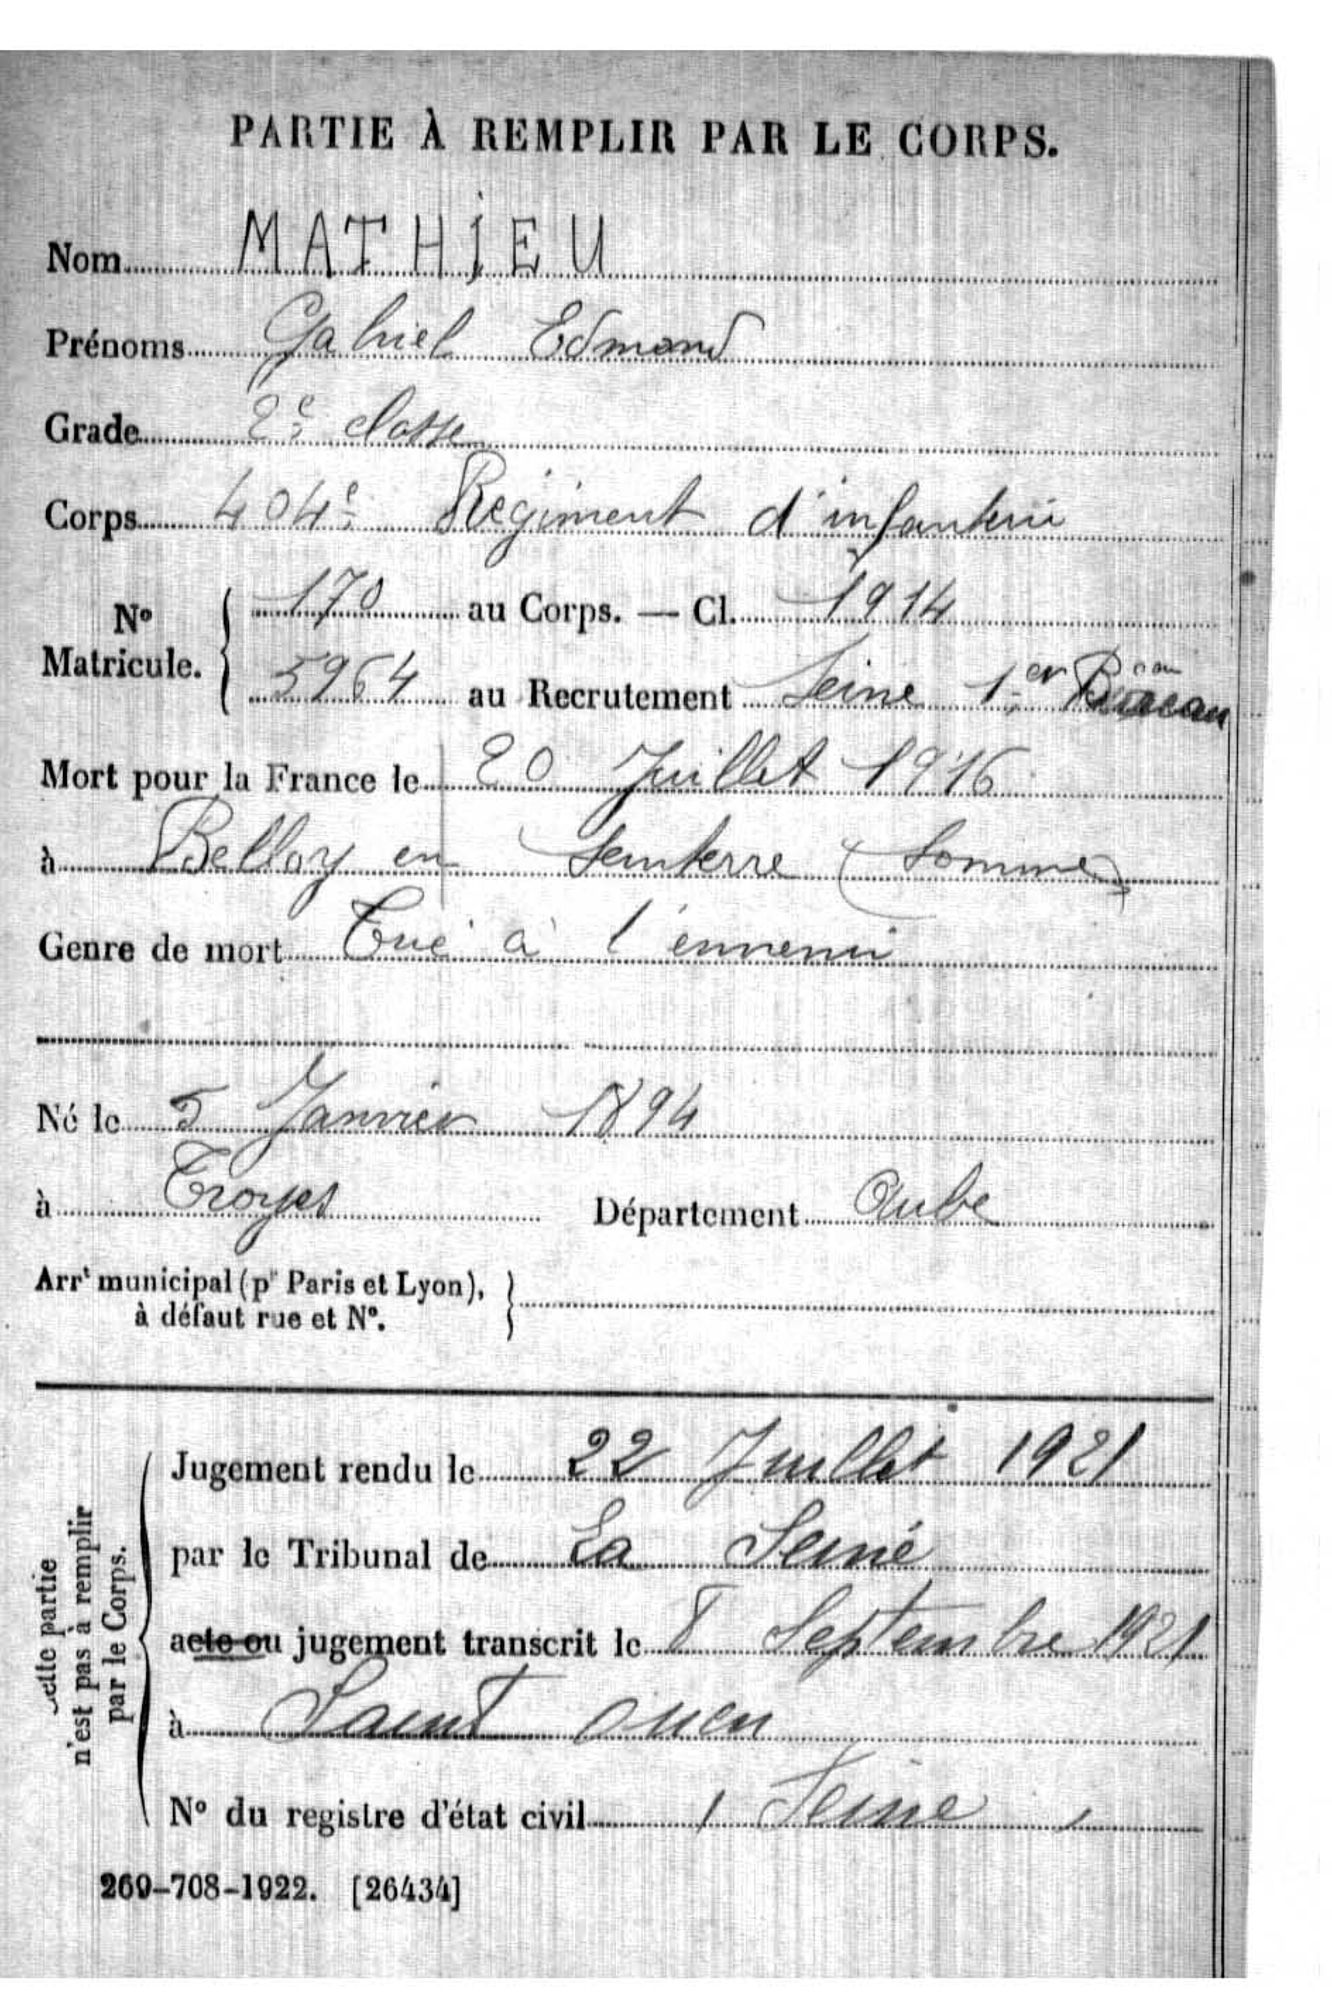 PARTIE À REMPLIR PAR LE CORPS.
Nom MATHIEU
Prénoms Gabriel Edmond
Grade 2e classe
Corps 404e Régiment d'infanterie
No Matricule. { 170 au Corps. — Cl. 1914
5964 au Recrutement Seine 1er Bureau
Mort pour la France le 20 Juillet 1916
à Belloy en Santerre (Somme)
Genre de mort Tué à l'ennemi
Né le 5 Janvier 1894
à Troyes Département Aube
Arrt municipal (pr Paris et Lyon), }
à défaut rue et No.
Cette partie
n'est pas à remplir
par le Corps.
Jugement rendu le 22 Juillet 1921
par le Tribunal de La Seine
acte ou jugement transcrit le 8 Septembre 1921
à Saint Ouen
No du registre d'état civil Seine
269-708-1922. [26434]